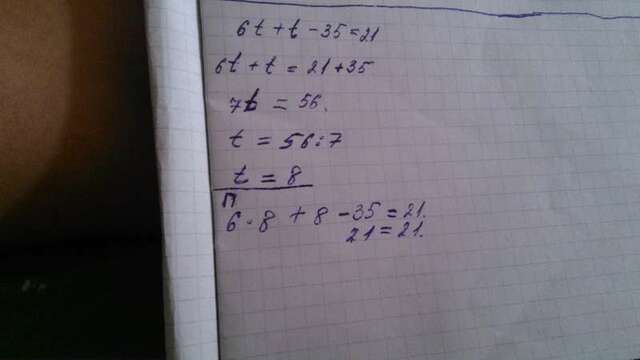 6t + t - 35 = 21
6t + t = 21 + 35
7t = 56.
t = 56 : 7
t = 8
П
6 · 8 + 8 - 35 = 21.
21 = 21.